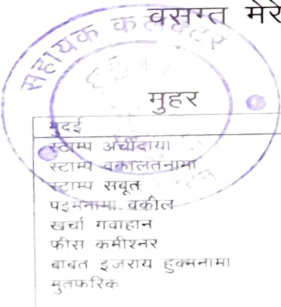 वसन्त मेरे
सहायक कलेक्टर
मुहर
मुदई
स्टाम्प अर्चीदाया
स्टाम्प वकालतनामा
स्टाम्प सबूत
पइमनामा वकील
खर्चा गवाहान
फीस कमीश्नर
बाबत इजराय हुक्मनामा
मुतफरिक